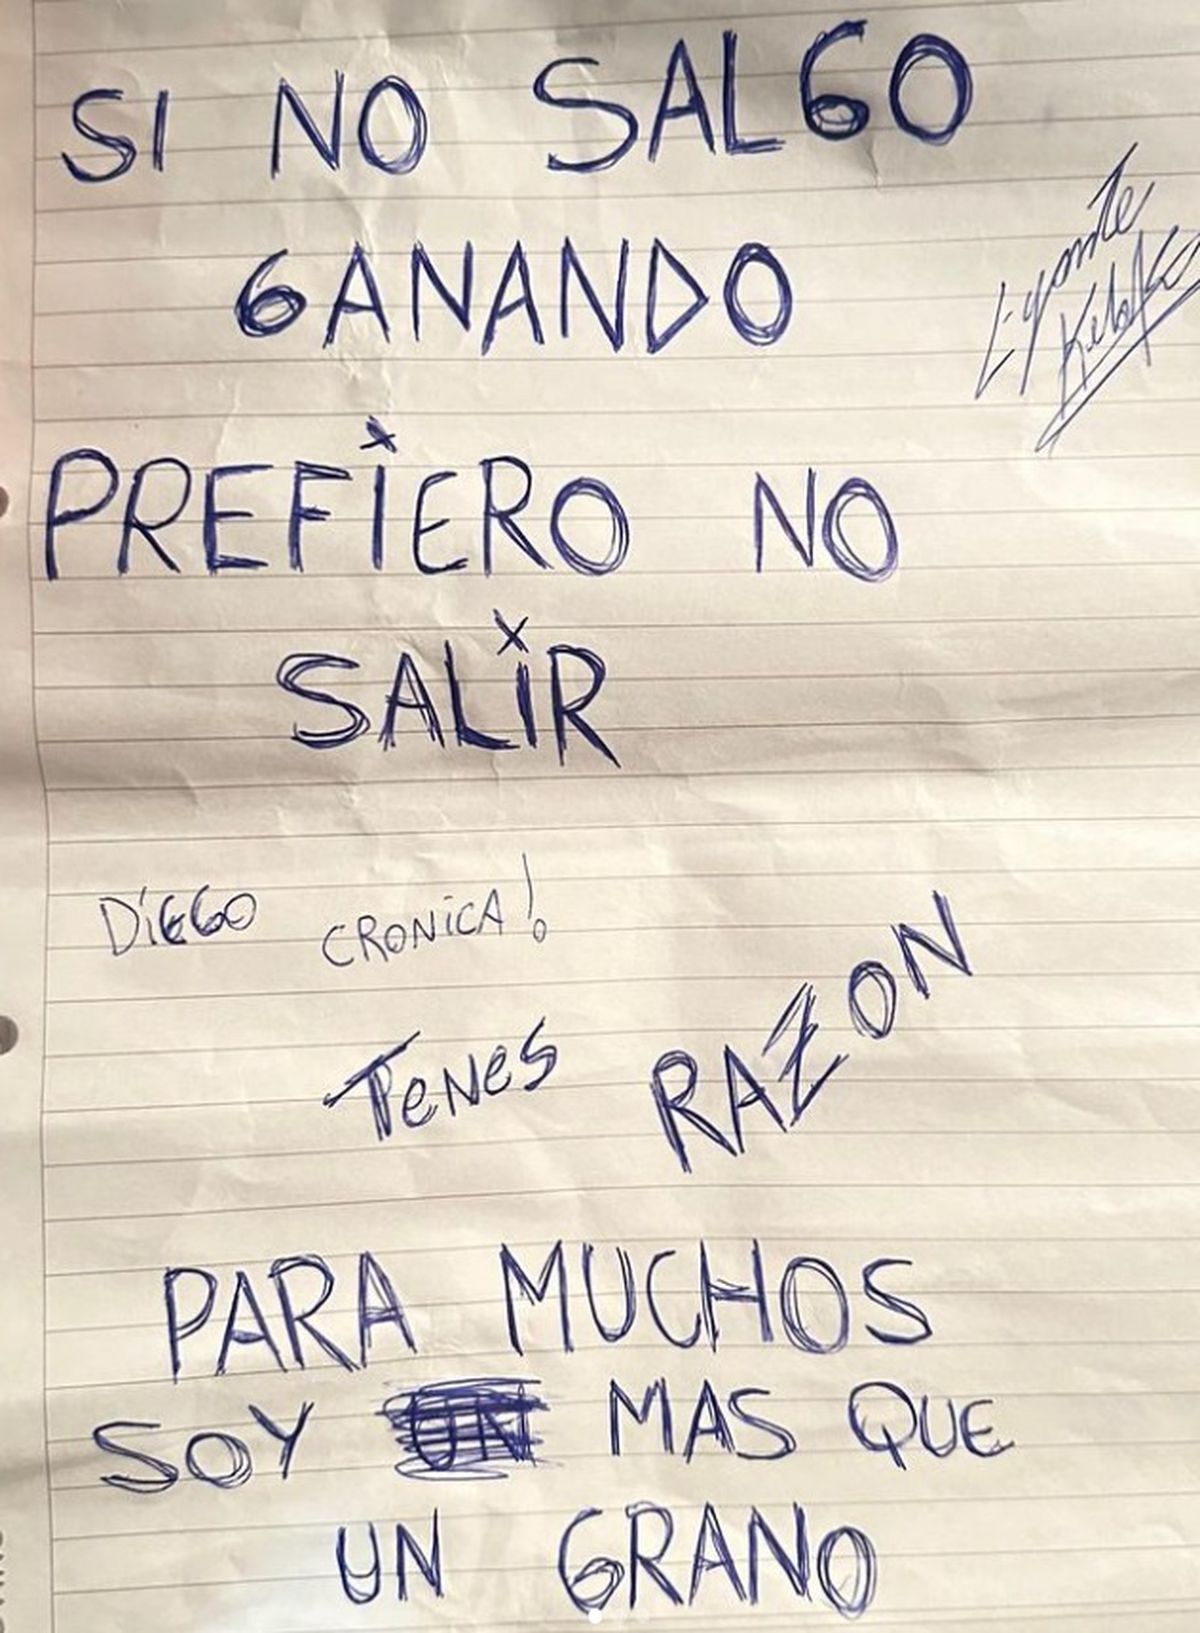 SI NO SALGO
GANANDO
PREFIERO NO
SALIR
DIEGO CRONICA!
TENES RAZON
PARA MUCHOS
SOY UN MAS QUE
UN GRANO